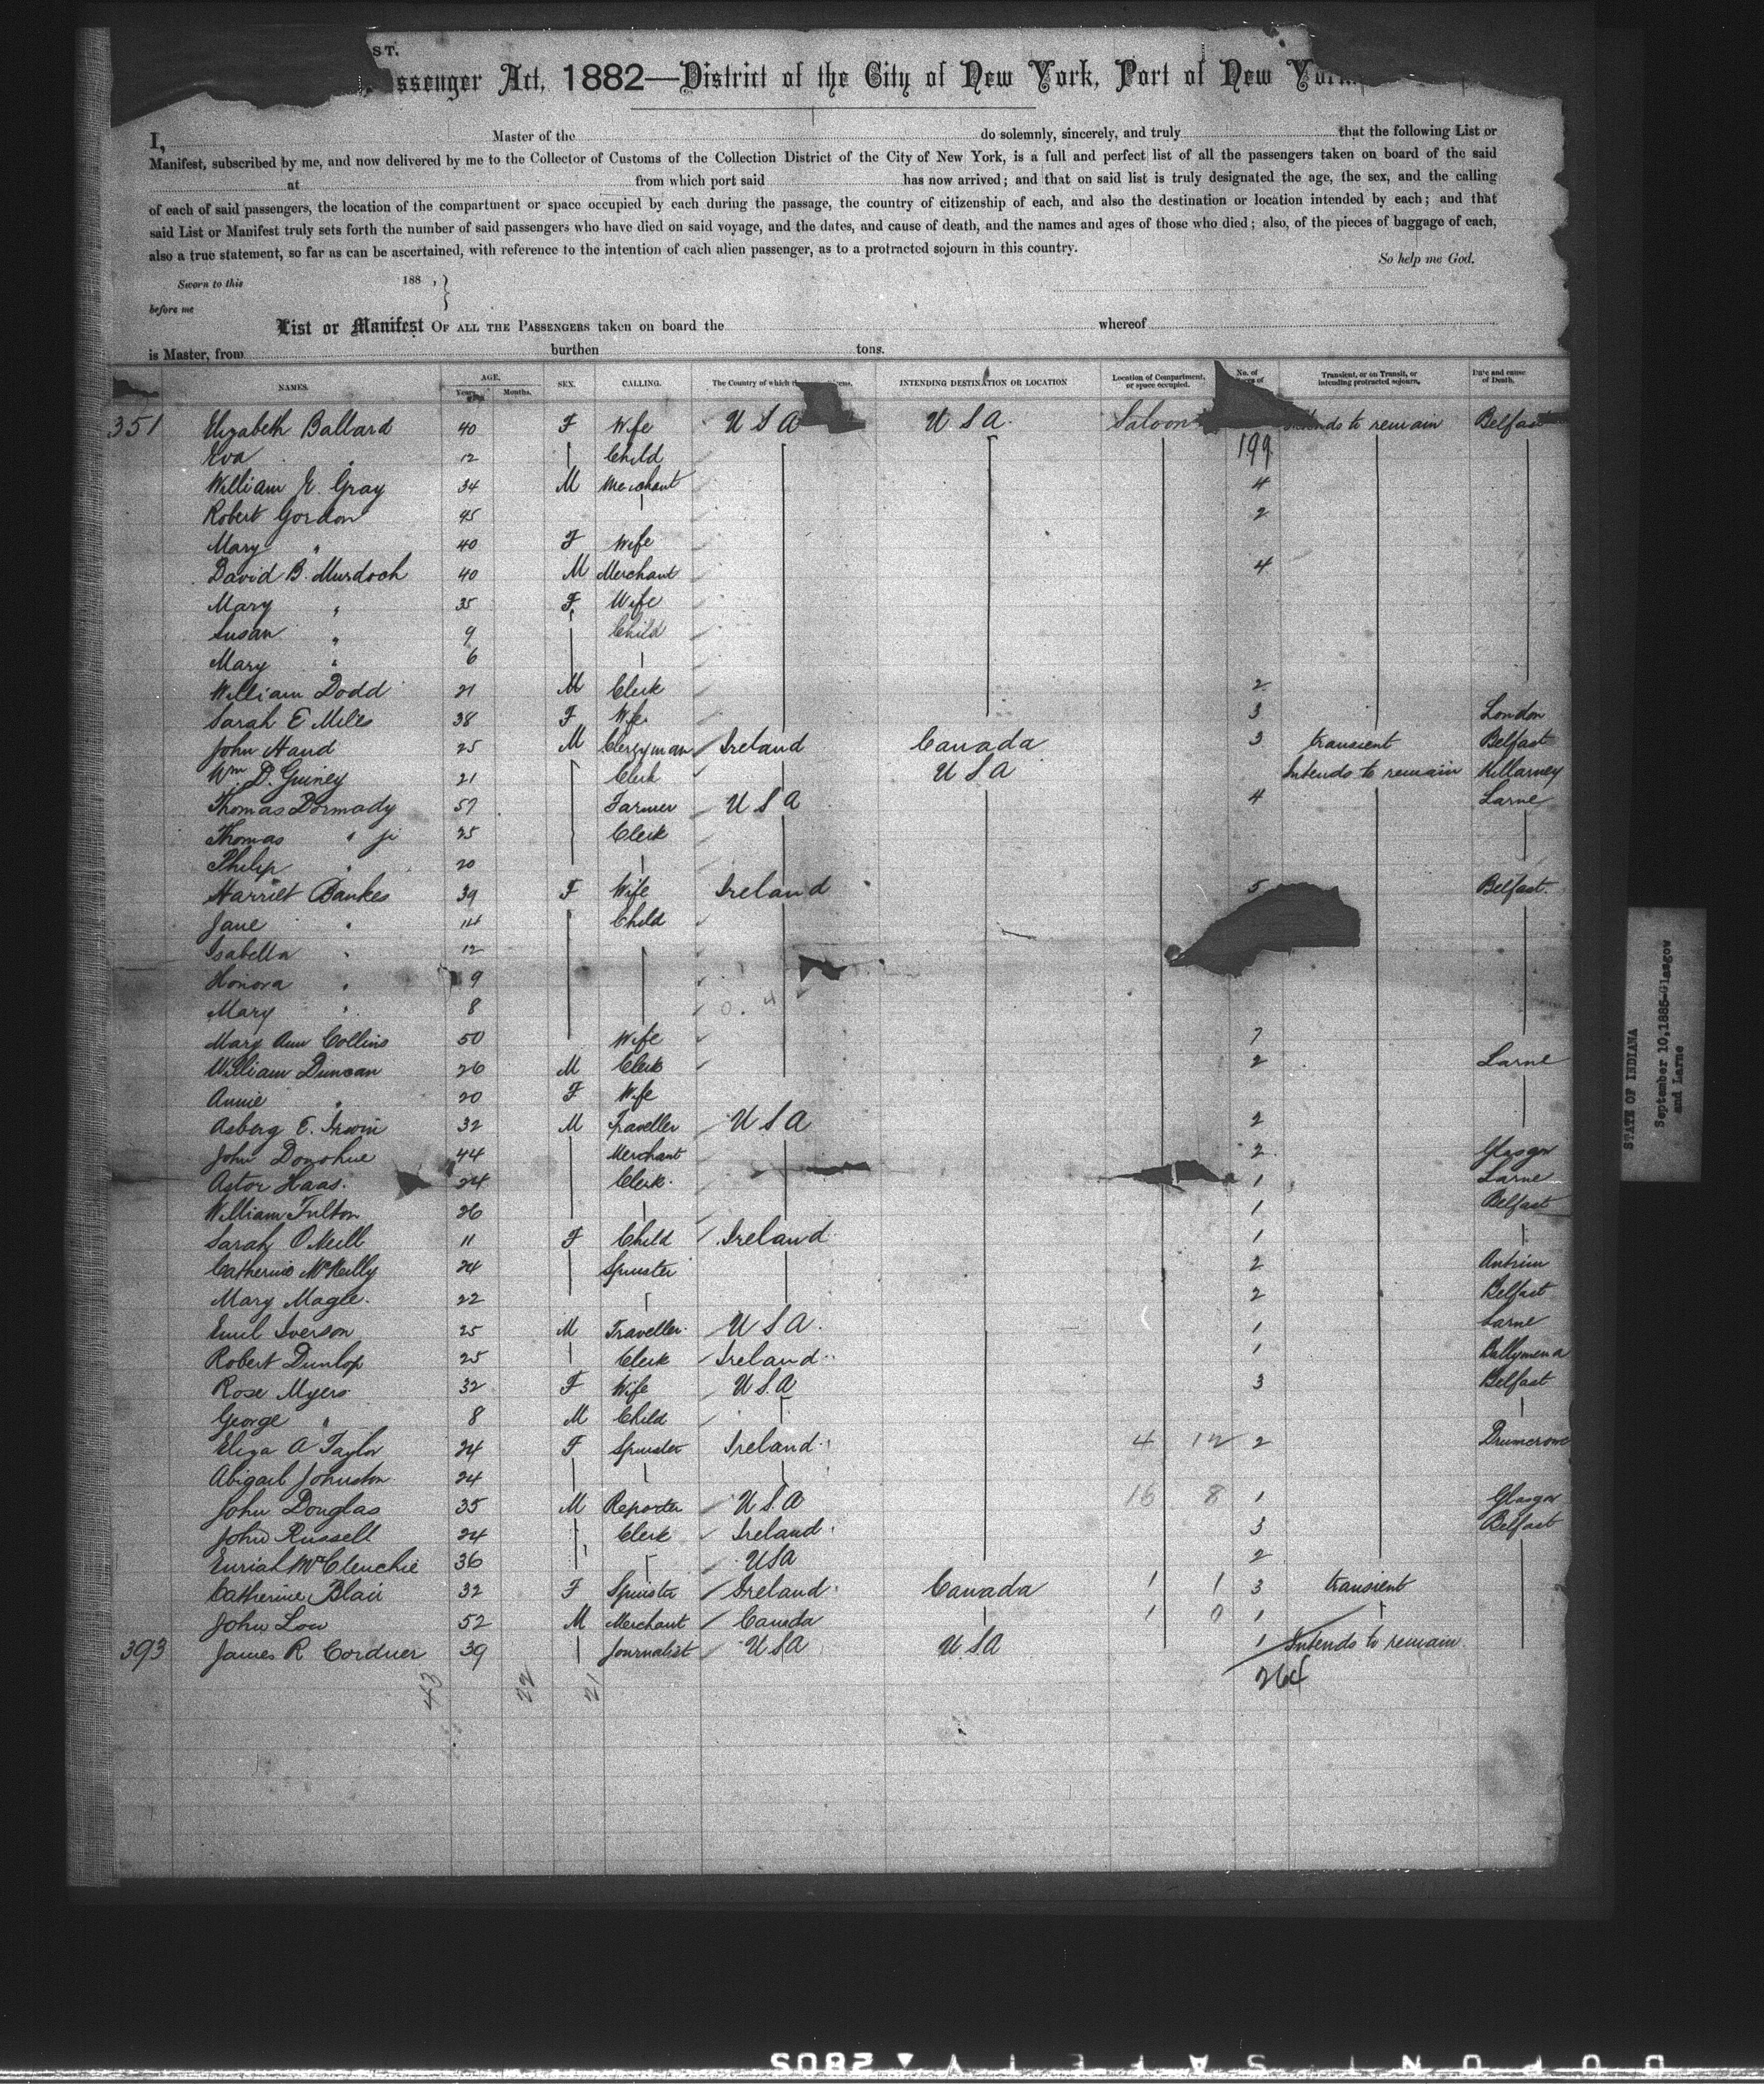 ST.
ssenger Act, 1882—District of the City of New York, Port of New York
I, Master of the do solemnly, sincerely, and truly that the following List or
Manifest, subscribed by me, and now delivered by me to the Collector of Customs of the Collection District of the City of New York, is a full and perfect list of all the passengers taken on board of the said
at from which port said has now arrived; and that on said list is truly designated the age, the sex, and the calling
of each of said passengers, the location of the compartment or space occupied by each during the passage, the country of citizenship of each, and also the destination or location intended by each; and that
said List or Manifest truly sets forth the number of said passengers who have died on said voyage, and the dates, and cause of death, and the names and ages of those who died; also, of the pieces of baggage of each,
also a true statement, so far as can be ascertained, with reference to the intention of each alien passenger, as to a protracted sojourn in this country.
So help me God.
Sworn to this 188 ,
before me
List or Manifest OF ALL THE PASSENGERS taken on board the whereof
is Master, from burthen tons.
NAMES. AGE. Years. Months. SEX. CALLING. The Country of which INTENDING DESTINATION OR LOCATION Location of Compartment, or space occupied. No. of Transient, or on Transit, or intending protracted sojourn. Date and cause of Death.
351 Elizabeth Ballard 40 F Wife U S A U S A. Saloon to remain Belfast
Eva " 12 Child 199
William E. Gray 34 M Merchant 4
Robert Gordon 45 2
Mary " 40 F Wife
David B. Murdoch 40 M Merchant 4
Mary " 35 F Wife
Susan " 9 Child
Mary " 6
William Dodd 21 M Clerk 2
Sarah E Miles 38 F Wife 3 London
John Hand 25 M Clergyman Ireland Canada 3 transient Belfast
Wm D. Guiney 21 Clerk U S A Intends to remain Killarney
Thomas Dormady 57 Farmer U S A 4 Larne
Thomas " jr 25 Clerk
Philip " 20
Harriet Bankes 39 F Wife Ireland 5 Belfast.
Jane " 14 Child
Isabella " 12
Honora " 9
Mary " 8
Mary Ann Collins 50 Wife 7
William Duncan 26 M Clerk 2 Larne
Annie " 20 F Wife
Asberg E. Irwin 32 M Traveller U S A 2
John Donohue 44 Merchant 2 Glasgow
Astor Haas. 24 Clerk. 1 Larne
William Fulton 26 1 Belfast
Sarah O'Neill 11 F Child Ireland 1
Catherine McNeilly 24 Spinster 2 Antrim
Mary Magee. 22 2 Belfast
Emil Iverson 25 M Traveller U S A. 1 Larne
Robert Dunlop 25 Clerk Ireland 1 Ballymena
Rose Myers 32 F Wife U.S.A 3 Belfast
George " 8 M Child
Eliza A Taylor 24 F Spinster Ireland 4 12 2
Abigail Johnston 24
John Douglas 35 M Reporter U.S.A 16 8 1 Glasgow
John Russell 24 Clerk Ireland 3 Belfast
McClenchie 36 USA 2
Catherine Blair 32 F Spinster Ireland Canada 1 1 3 transient
John Low 52 M Merchant Canada 1 0 1
393 James R Cordner 39 Journalist USA USA 1 Intends to remain
264
43 22 21
STATE OF INDIANA
September 10, 1885-Glasgow
and Larne